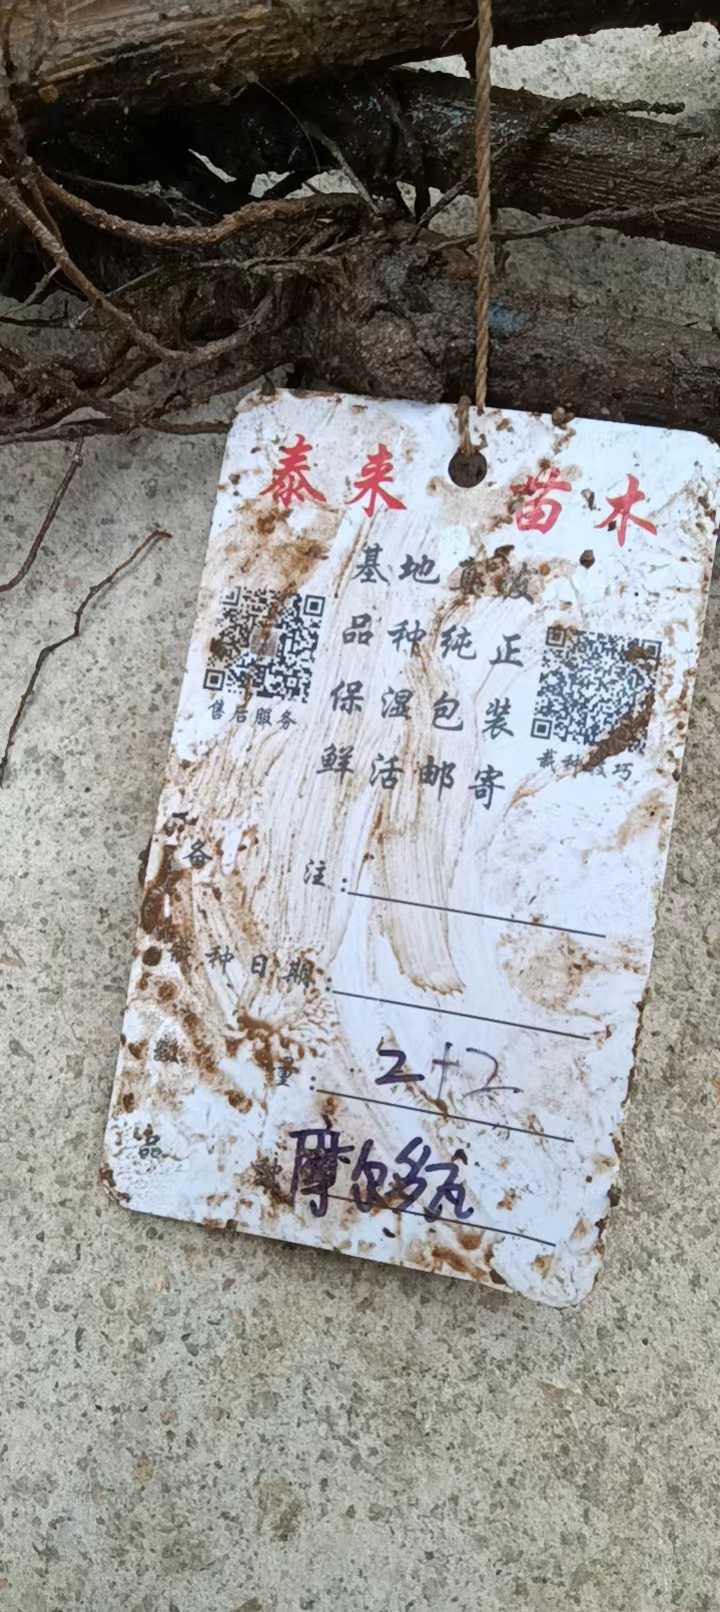 泰来 苗木
基地直发
品种纯正
保湿包装
鲜活邮寄
售后服务
栽种技巧
备 注：
栽种日期：
数 量： 2+2
品 种 摩尔多瓦